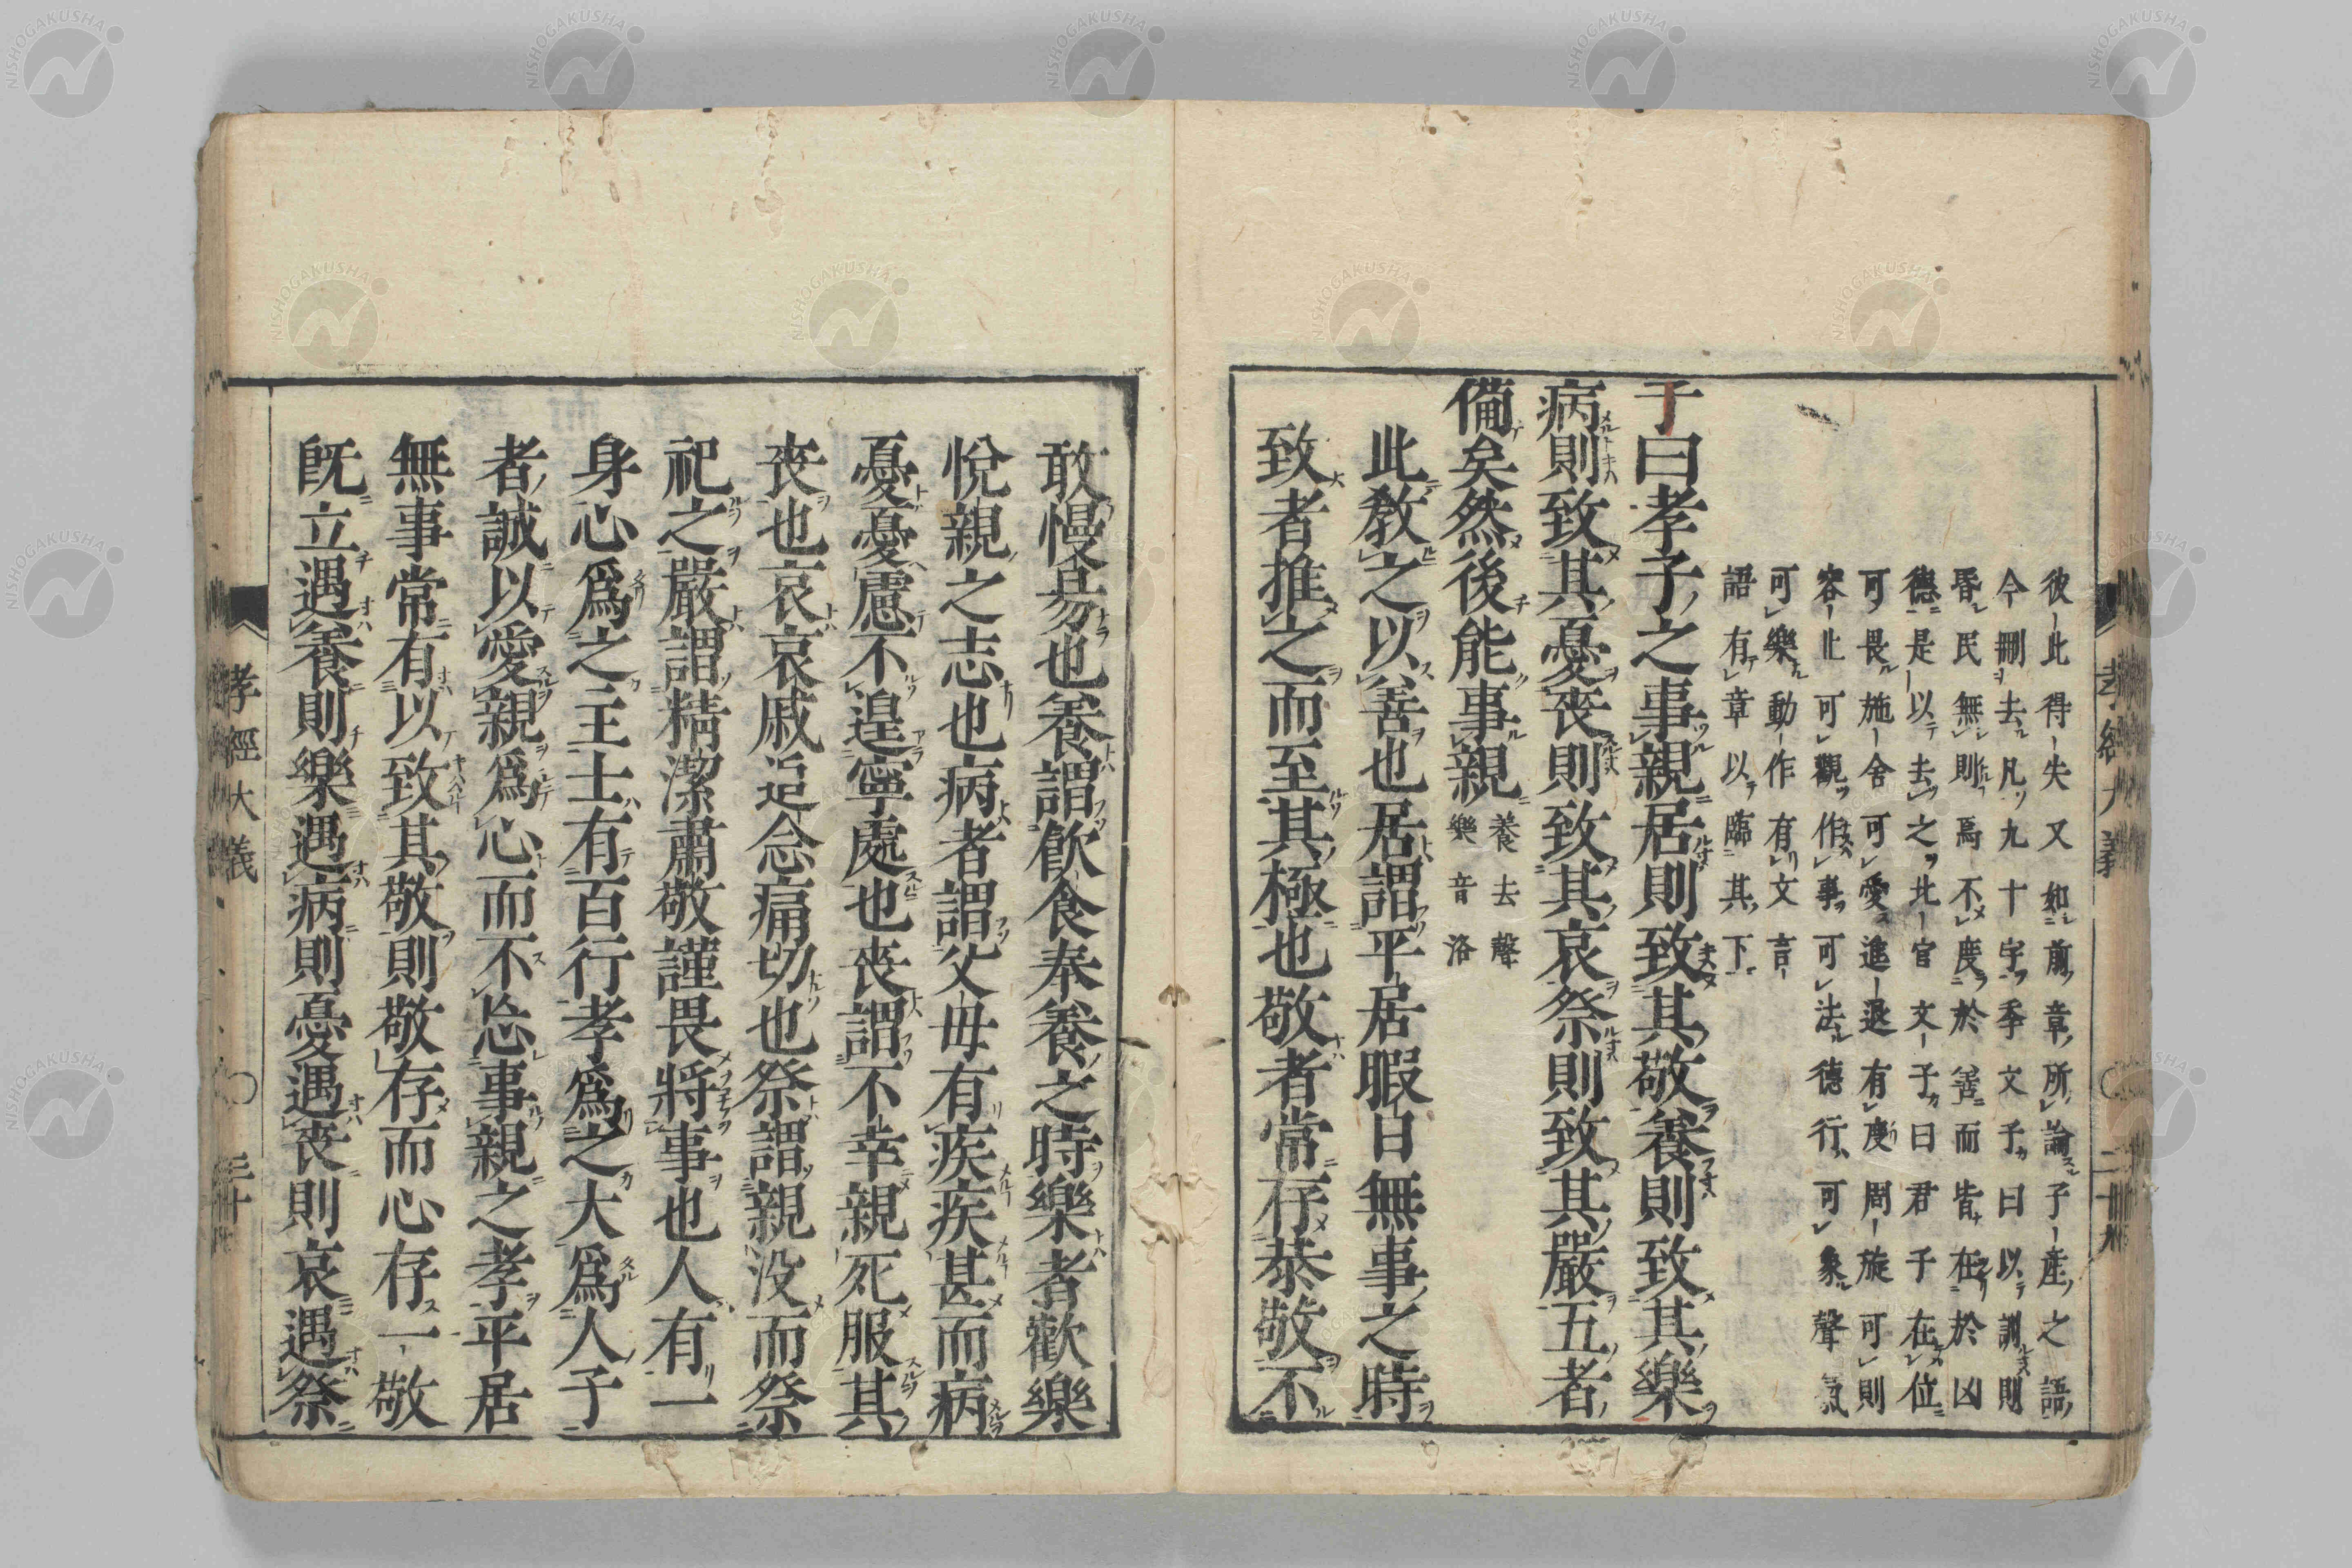 彼此得失又如前章所論子產之語
今刪去凡九十字季文子曰以訓則
昏民無則焉不度於善而皆在於凶
德是以去之北宮文子曰君子在位
可畏施舍可愛進退有度周旋可則
容止可觀作事可法德行可象聲氣
可樂動作有文言
語有章以臨其下
子曰孝子之事親居則致其敬養則致其樂
病則致其憂喪則致其哀祭則致其嚴五者
備矣然後能事親養去聲樂音洛
此敎之以善也居謂平居暇日無事之時
致者推之而至其極也敬者常存恭敬不
敢慢易也養謂飮食奉養之時樂者歡樂
悅親之志也病者謂父母有疾疾甚而病
憂憂慮不遑寧處也喪謂不幸親死服其
喪也哀哀戚追念痛切也祭謂親沒而祭
祀之嚴謂精潔肅敬謹畏將事也人有一
身心爲之主士有百行孝爲之大爲人子
者誠以愛親爲心而不忘事親之孝平居
無事常有以致其敬則敬存而心存一敬
旣立遇養則樂遇病則憂遇喪則哀遇祭
孝經大義
三十
孝經大義
二十九
NISHOGAKUSHA